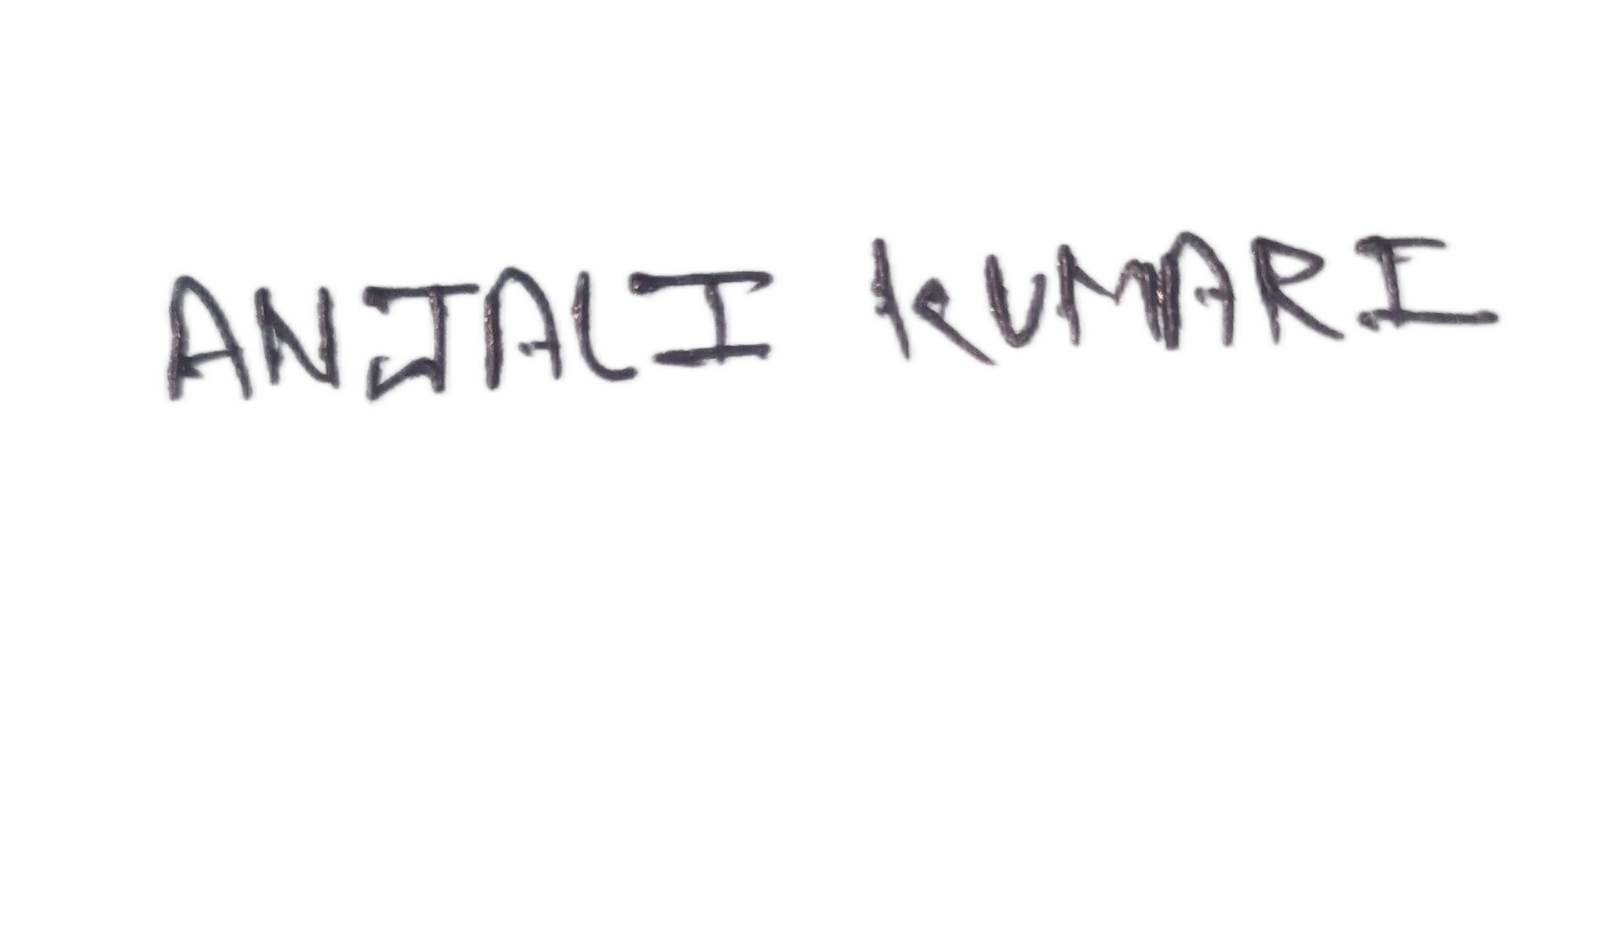 ANJALI KUMARI